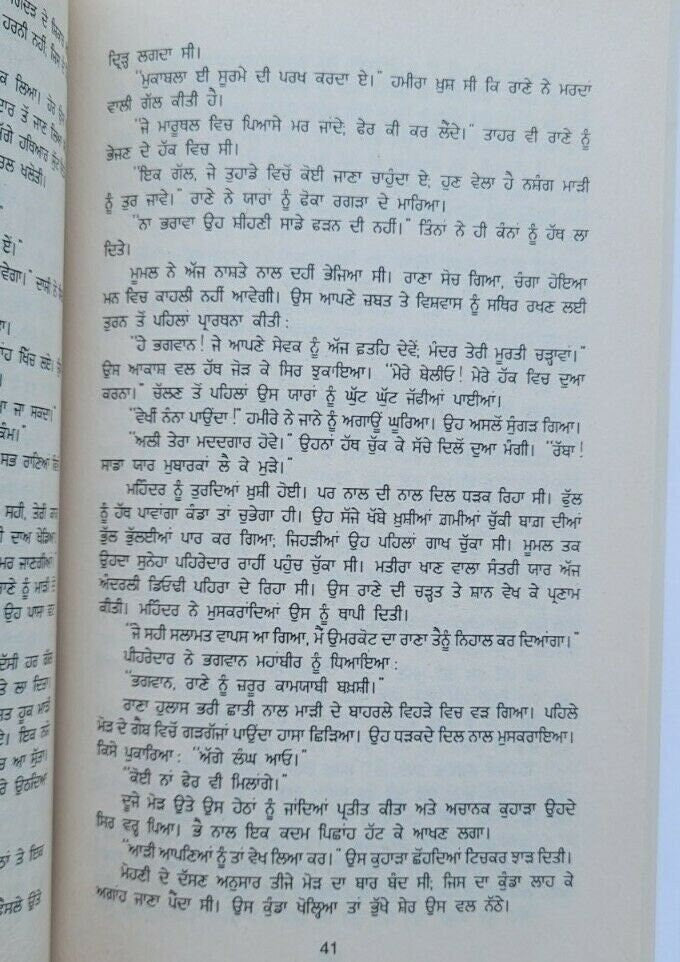 ਦ੍ਰਿੜ੍ਹ ਲਗਦਾ ਸੀ।
"ਮੁਕਾਬਲਾ ਈ ਸੂਰਮੇ ਦੀ ਪਰਖ ਕਰਦਾ ਏ।" ਹਮੀਰਾ ਖ਼ੁਸ਼ ਸੀ ਕਿ ਰਾਣੇ ਨੇ ਮਰਦਾਂ
ਵਾਲੀ ਗੱਲ ਕੀਤੀ ਹੈ।
"ਜੇ ਮਾਰੂਥਲ ਵਿਚ ਪਿਆਸੇ ਮਰ ਜਾਂਦੇ; ਫੇਰ ਕੀ ਕਰ ਲੈਂਦੇ।" ਤਾਹਰ ਵੀ ਰਾਣੇ ਨੂੰ
ਭੇਜਣ ਦੇ ਹੱਕ ਵਿਚ ਸੀ।
"ਇਕ ਗੱਲ, ਜੇ ਤੁਹਾਡੇ ਵਿਚੋਂ ਕੋਈ ਜਾਣਾ ਚਾਹੁੰਦਾ ਏ; ਹੁਣ ਵੇਲਾ ਹੈ ਨਸ਼ੰਗ ਮਾੜੀ
ਨੂੰ ਤੁਰ ਜਾਵੇ।" ਰਾਣੇ ਨੇ ਯਾਰਾਂ ਨੂੰ ਫੋਕਾ ਰਗੜਾ ਦੇ ਮਾਰਿਆ।
"ਨਾ ਭਰਾਵਾ ਉਹ ਸ਼ੀਂਹਣੀ ਸਾਡੇ ਫੜਨ ਦੀ ਨਹੀਂ।" ਤਿੰਨਾਂ ਨੇ ਹੀ ਕੰਨਾਂ ਨੂੰ ਹੱਥ ਲਾ
ਦਿਤੇ।
ਮੂਮਲ ਨੇ ਅੱਜ ਨਾਸ਼ਤੇ ਨਾਲ ਦਹੀਂ ਭੇਜਿਆ ਸੀ। ਰਾਣਾ ਸੋਚ ਗਿਆ, ਚੰਗਾ ਹੋਇਆ
ਮਨ ਵਿਚ ਕਾਹਲੀ ਨਹੀਂ ਆਵੇਗੀ। ਉਸ ਆਪਣੇ ਜ਼ਬਤ ਤੇ ਵਿਸ਼ਵਾਸ ਨੂੰ ਸਥਿਰ ਰਖਣ ਲਈ
ਤੁਰਨ ਤੋਂ ਪਹਿਲਾਂ ਪ੍ਰਾਰਥਨਾ ਕੀਤੀ :
"ਹੇ ਭਗਵਾਨ! ਜੇ ਆਪਣੇ ਸੇਵਕ ਨੂੰ ਅੱਜ ਫ਼ਤਹਿ ਦੇਵੇਂ; ਮੰਦਰ ਤੇਰੀ ਮੂਰਤੀ ਚੜ੍ਹਾਵਾਂ।"
ਉਸ ਆਕਾਸ਼ ਵਲ ਹੱਥ ਜੋੜ ਕੇ ਸਿਰ ਝੁਕਾਇਆ। "ਮੇਰੇ ਬੇਲੀਓ! ਮੇਰੇ ਹੱਕ ਵਿਚ ਦੁਆ
ਕਰਨਾ।" ਚੱਲਣ ਤੋਂ ਪਹਿਲਾਂ ਉਸ ਯਾਰਾਂ ਨੂੰ ਘੁੱਟ ਘੁੱਟ ਜੱਫੀਆਂ ਪਾਈਆਂ।
"ਵੇਖੀਂ ਨੰਨਾ ਪਾਉਂਦਾ!" ਹਮੀਰੇ ਨੇ ਜਾਨੇ ਨੂੰ ਅਗਾਊਂ ਘੂਰਿਆ। ਉਹ ਅਸਲੋਂ ਸੁੰਗੜ ਗਿਆ।
"ਅਲੀ ਤੇਰਾ ਮਦਦਗਾਰ ਹੋਵੇ।" ਉਹਨਾਂ ਹੱਥ ਚੁੱਕ ਕੇ ਸੱਚੇ ਦਿਲੋਂ ਦੁਆ ਮੰਗੀ। "ਰੱਬਾ!
ਸਾਡਾ ਯਾਰ ਮੁਬਾਰਕਾਂ ਲੈ ਕੇ ਮੁੜੇ।"
ਮਹਿੰਦਰ ਨੂੰ ਤੁਰਦਿਆਂ ਖ਼ੁਸ਼ੀ ਹੋਈ। ਪਰ ਨਾਲ ਦੀ ਨਾਲ ਦਿਲ ਧੜਕ ਰਿਹਾ ਸੀ। ਫੁੱਲ
ਨੂੰ ਹੱਥ ਪਾਵਾਂਗਾ ਕੰਡਾ ਤਾਂ ਚੁਭੇਗਾ ਹੀ। ਉਹ ਸੱਜੇ ਖੱਬੇ ਖ਼ੁਸ਼ੀਆਂ ਗ਼ਮੀਆਂ ਚੁੱਕੀ ਬਾਗ਼ ਦੀਆਂ
ਭੁੱਲ ਭੁੱਲਈਆਂ ਪਾਰ ਕਰ ਗਿਆ; ਜਿਹੜੀਆਂ ਉਹ ਪਹਿਲਾਂ ਗਾਖ ਚੁੱਕਾ ਸੀ। ਮੂਮਲ ਤਕ
ਉਹਦਾ ਸੁਨੇਹਾ ਪਹਿਰੇਦਾਰ ਰਾਹੀਂ ਪਹੁੰਚ ਚੁੱਕਾ ਸੀ। ਮਤੀਰਾ ਖਾਣ ਵਾਲਾ ਸੰਤਰੀ ਯਾਰ ਅੱਜ
ਅੰਦਰਲੀ ਡਿਓਢੀ ਪਹਿਰਾ ਦੇ ਰਿਹਾ ਸੀ। ਉਸ ਰਾਣੇ ਦੀ ਚੜ੍ਹਤ ਤੇ ਸ਼ਾਨ ਵੇਖ ਕੇ ਪ੍ਰਣਾਮ
ਕੀਤੀ। ਮਹਿੰਦਰ ਨੇ ਮੁਸਕਰਾਂਦਿਆਂ ਉਸ ਨੂੰ ਥਾਪੀ ਦਿਤੀ।
"ਜੇ ਸਹੀ ਸਲਾਮਤ ਵਾਪਸ ਆ ਗਿਆ, ਮੈਂ ਉਮਰਕੋਟ ਦਾ ਰਾਣਾ ਤੈਨੂੰ ਨਿਹਾਲ ਕਰ ਦਿਆਂਗਾ।"
ਪੀਹਰੇਦਾਰ ਨੇ ਭਗਵਾਨ ਮਹਾਂਬੀਰ ਨੂੰ ਧਿਆਇਆ :
"ਭਗਵਾਨ, ਰਾਣੇ ਨੂੰ ਜ਼ਰੂਰ ਕਾਮਯਾਬੀ ਬਖ਼ਸ਼ੀਂ।"
ਰਾਣਾ ਹੁਲਾਸ ਭਰੀ ਛਾਤੀ ਨਾਲ ਮਾੜੀ ਦੇ ਬਾਹਰਲੇ ਵਿਹੜੇ ਵਿਚ ਵੜ ਗਿਆ। ਪਹਿਲੇ
ਮੋੜ ਦੇ ਗ਼ੈਬ ਵਿਚੋਂ ਗੜਗੱਜਾਂ ਪਾਉਂਦਾ ਹਾਸਾ ਛਿੜਿਆ। ਉਹ ਧੜਕਦੇ ਦਿਲ ਨਾਲ ਮੁਸਕਰਾਇਆ।
ਕਿਸੇ ਪੁਕਾਰਿਆ : "ਅੱਗੇ ਲੰਘ ਆਓ।"
"ਕੋਈ ਨਾਂ ਫੇਰ ਵੀ ਮਿਲਾਂਗੇ।"
ਦੂਜੇ ਮੋੜ ਉਤੇ ਉਸ ਹੇਠਾਂ ਨੂੰ ਜਾਂਦਿਆਂ ਪ੍ਰਤੀਤ ਕੀਤਾ ਅਤੇ ਅਚਾਨਕ ਕੁਹਾੜਾ ਉਹਦੇ
ਸਿਰ ਵਰ੍ਹ ਪਿਆ। ਭੈ ਨਾਲ ਇਕ ਕਦਮ ਪਿਛਾਂਹ ਹੱਟ ਕੇ ਆਖਣ ਲਗਾ।
"ਆੜੀ ਆਪਣਿਆਂ ਨੂੰ ਤਾਂ ਵੇਖ ਲਿਆ ਕਰ।" ਉਸ ਕੁਹਾੜਾ ਛੋਂਹਦਿਆਂ ਟਿਚਕਰ ਝਾੜ ਦਿਤੀ।
ਮੋਹਣੀ ਦੇ ਦੱਸਣ ਅਨੁਸਾਰ ਤੀਜੇ ਮੋੜ ਦਾ ਬਾਰ ਬੰਦ ਸੀ; ਜਿਸ ਦਾ ਕੁੰਡਾ ਲਾਹ ਕੇ
ਅਗਾਂਹ ਜਾਣਾ ਪੈਂਦਾ ਸੀ। ਉਸ ਕੁੰਡਾ ਖੋਲ੍ਹਿਆ ਤਾਂ ਭੁੱਖੇ ਸ਼ੇਰ ਉਸ ਵਲ ਨੱਠੇ।
41